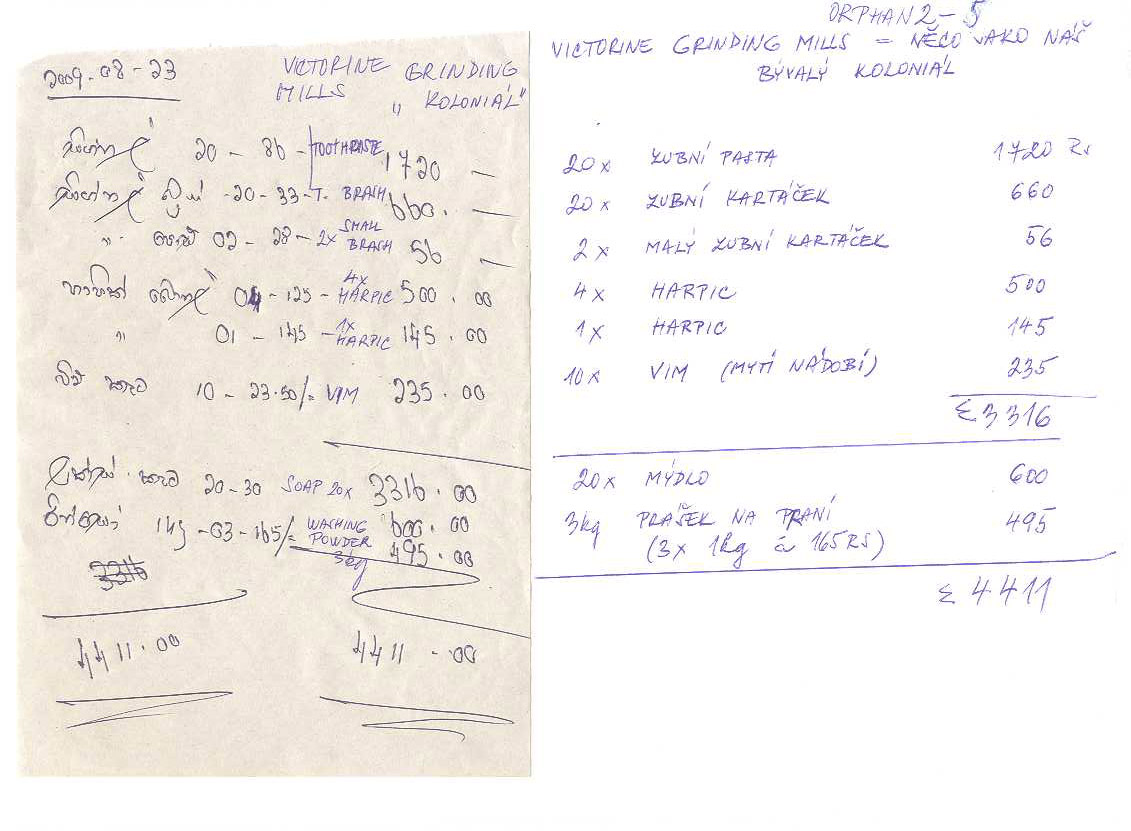 2009-08-23
VICTORINE GRINDING
MILLS " KOLONIÁL"
සිග්නල් 20 - 86 - TOOTHPASTE 1720 —
සිග්නල් බ්‍රෂ් -20-33-T. BRASH 660. —
" 02 - 28 - 2x SMALL BRASH 56 —
හාපික් බෝතල් 04 - 125 - 4x HARPIC 500.00
" 01 - 145 - 1x HARPIC 145.00
විම් කෑට 10 - 23.50/= VIM 235.00
කෑට 20-30 SOAP 20x 3316.00
600.00
-03-165/= WASHING POWDER 3kg 495.00
3316
4411.00 4411-.00
ORPHAN 2-5
VICTORINE GRINDING MILLS = NĚCO JAKO NÁŠ
BÝVALÝ KOLONIÁL
20x ZUBNÍ PASTA 1720 Rs
20x ZUBNÍ KARTÁČEK 660
2x MALÝ ZUBNÍ KARTÁČEK 56
4x HARPIC 500
1x HARPIC 145
10x VIM (MYTÍ NÁDOBÍ) 235
Σ 3316
20x MÝDLO 600
3kg PRÁŠEK NA PRANÍ 495
(3x 1kg á 165RS)
Σ 4411